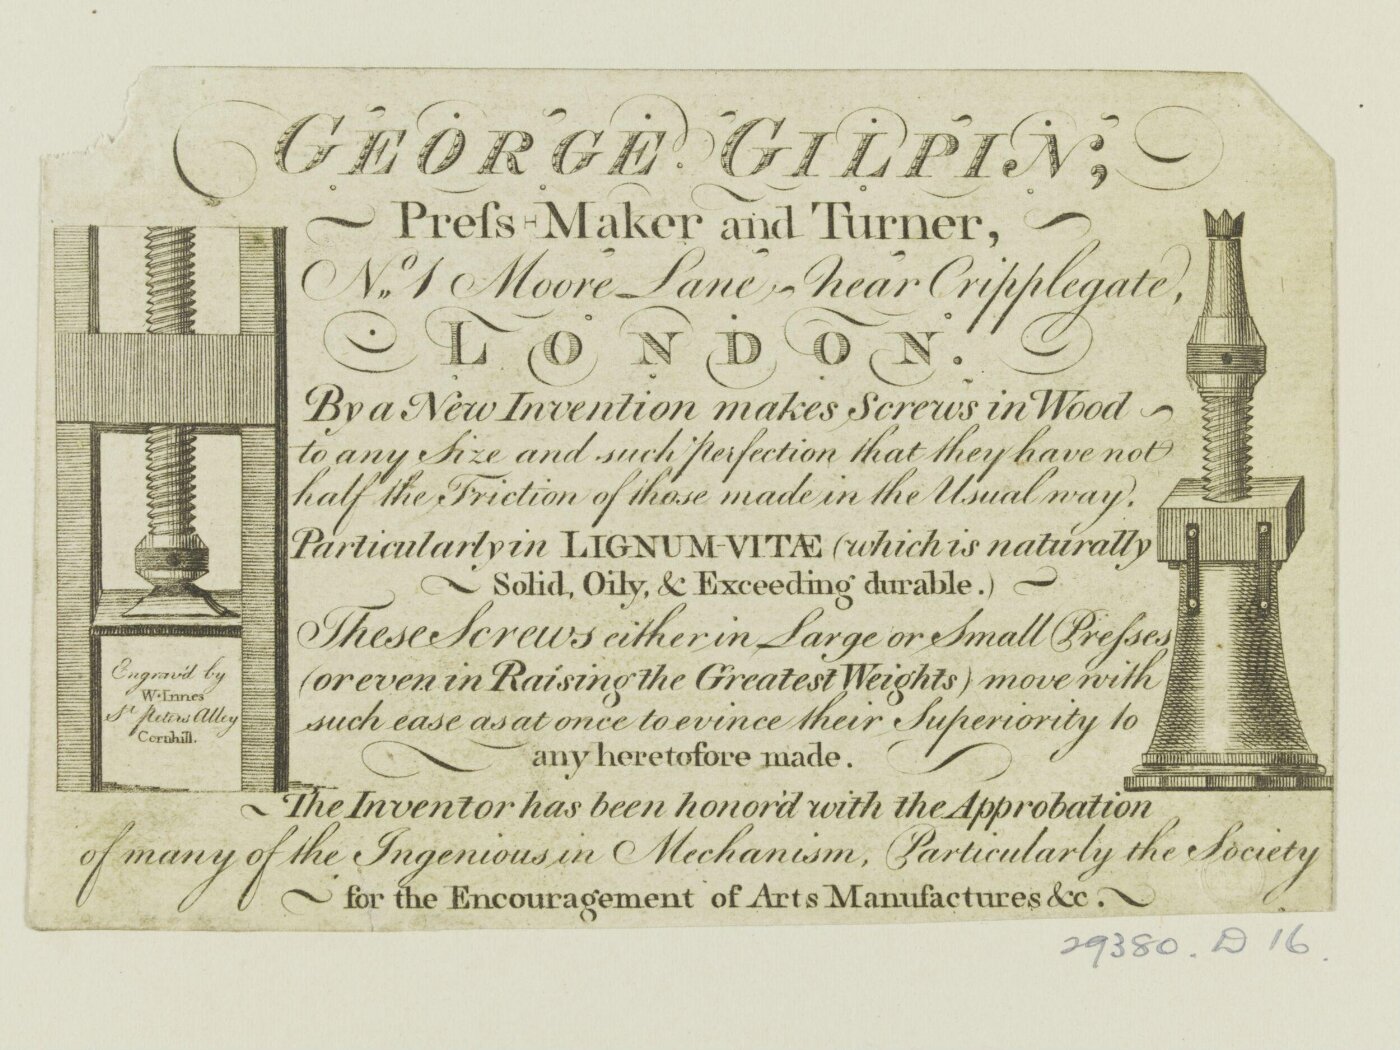 GEORGE GILPIN;
Preſs-Maker and Turner,
No. 1 Moore Lane near Cripplegate,
LONDON.
By a New Invention makes Screws in Wood
to any Size and such Perfection that they have not
half the Friction of those made in the Usual way.
Particularly in LIGNUM-VITÆ (which is naturally
Solid, Oily, & Exceeding durable.)
These Screws either in Large or Small Preſses
(or even in Raising the Greatest Weights) move with
such ease as at once to evince their Superiority to
any heretofore made.
The Inventor has been honor'd with the Approbation
of many of the Ingenious in Mechanism, Particularly the Society
for the Encouragement of Arts Manufactures &c.
Engrav'd by
W. Innes
St. Peters Alley
Cornhill.
29380. D 16.